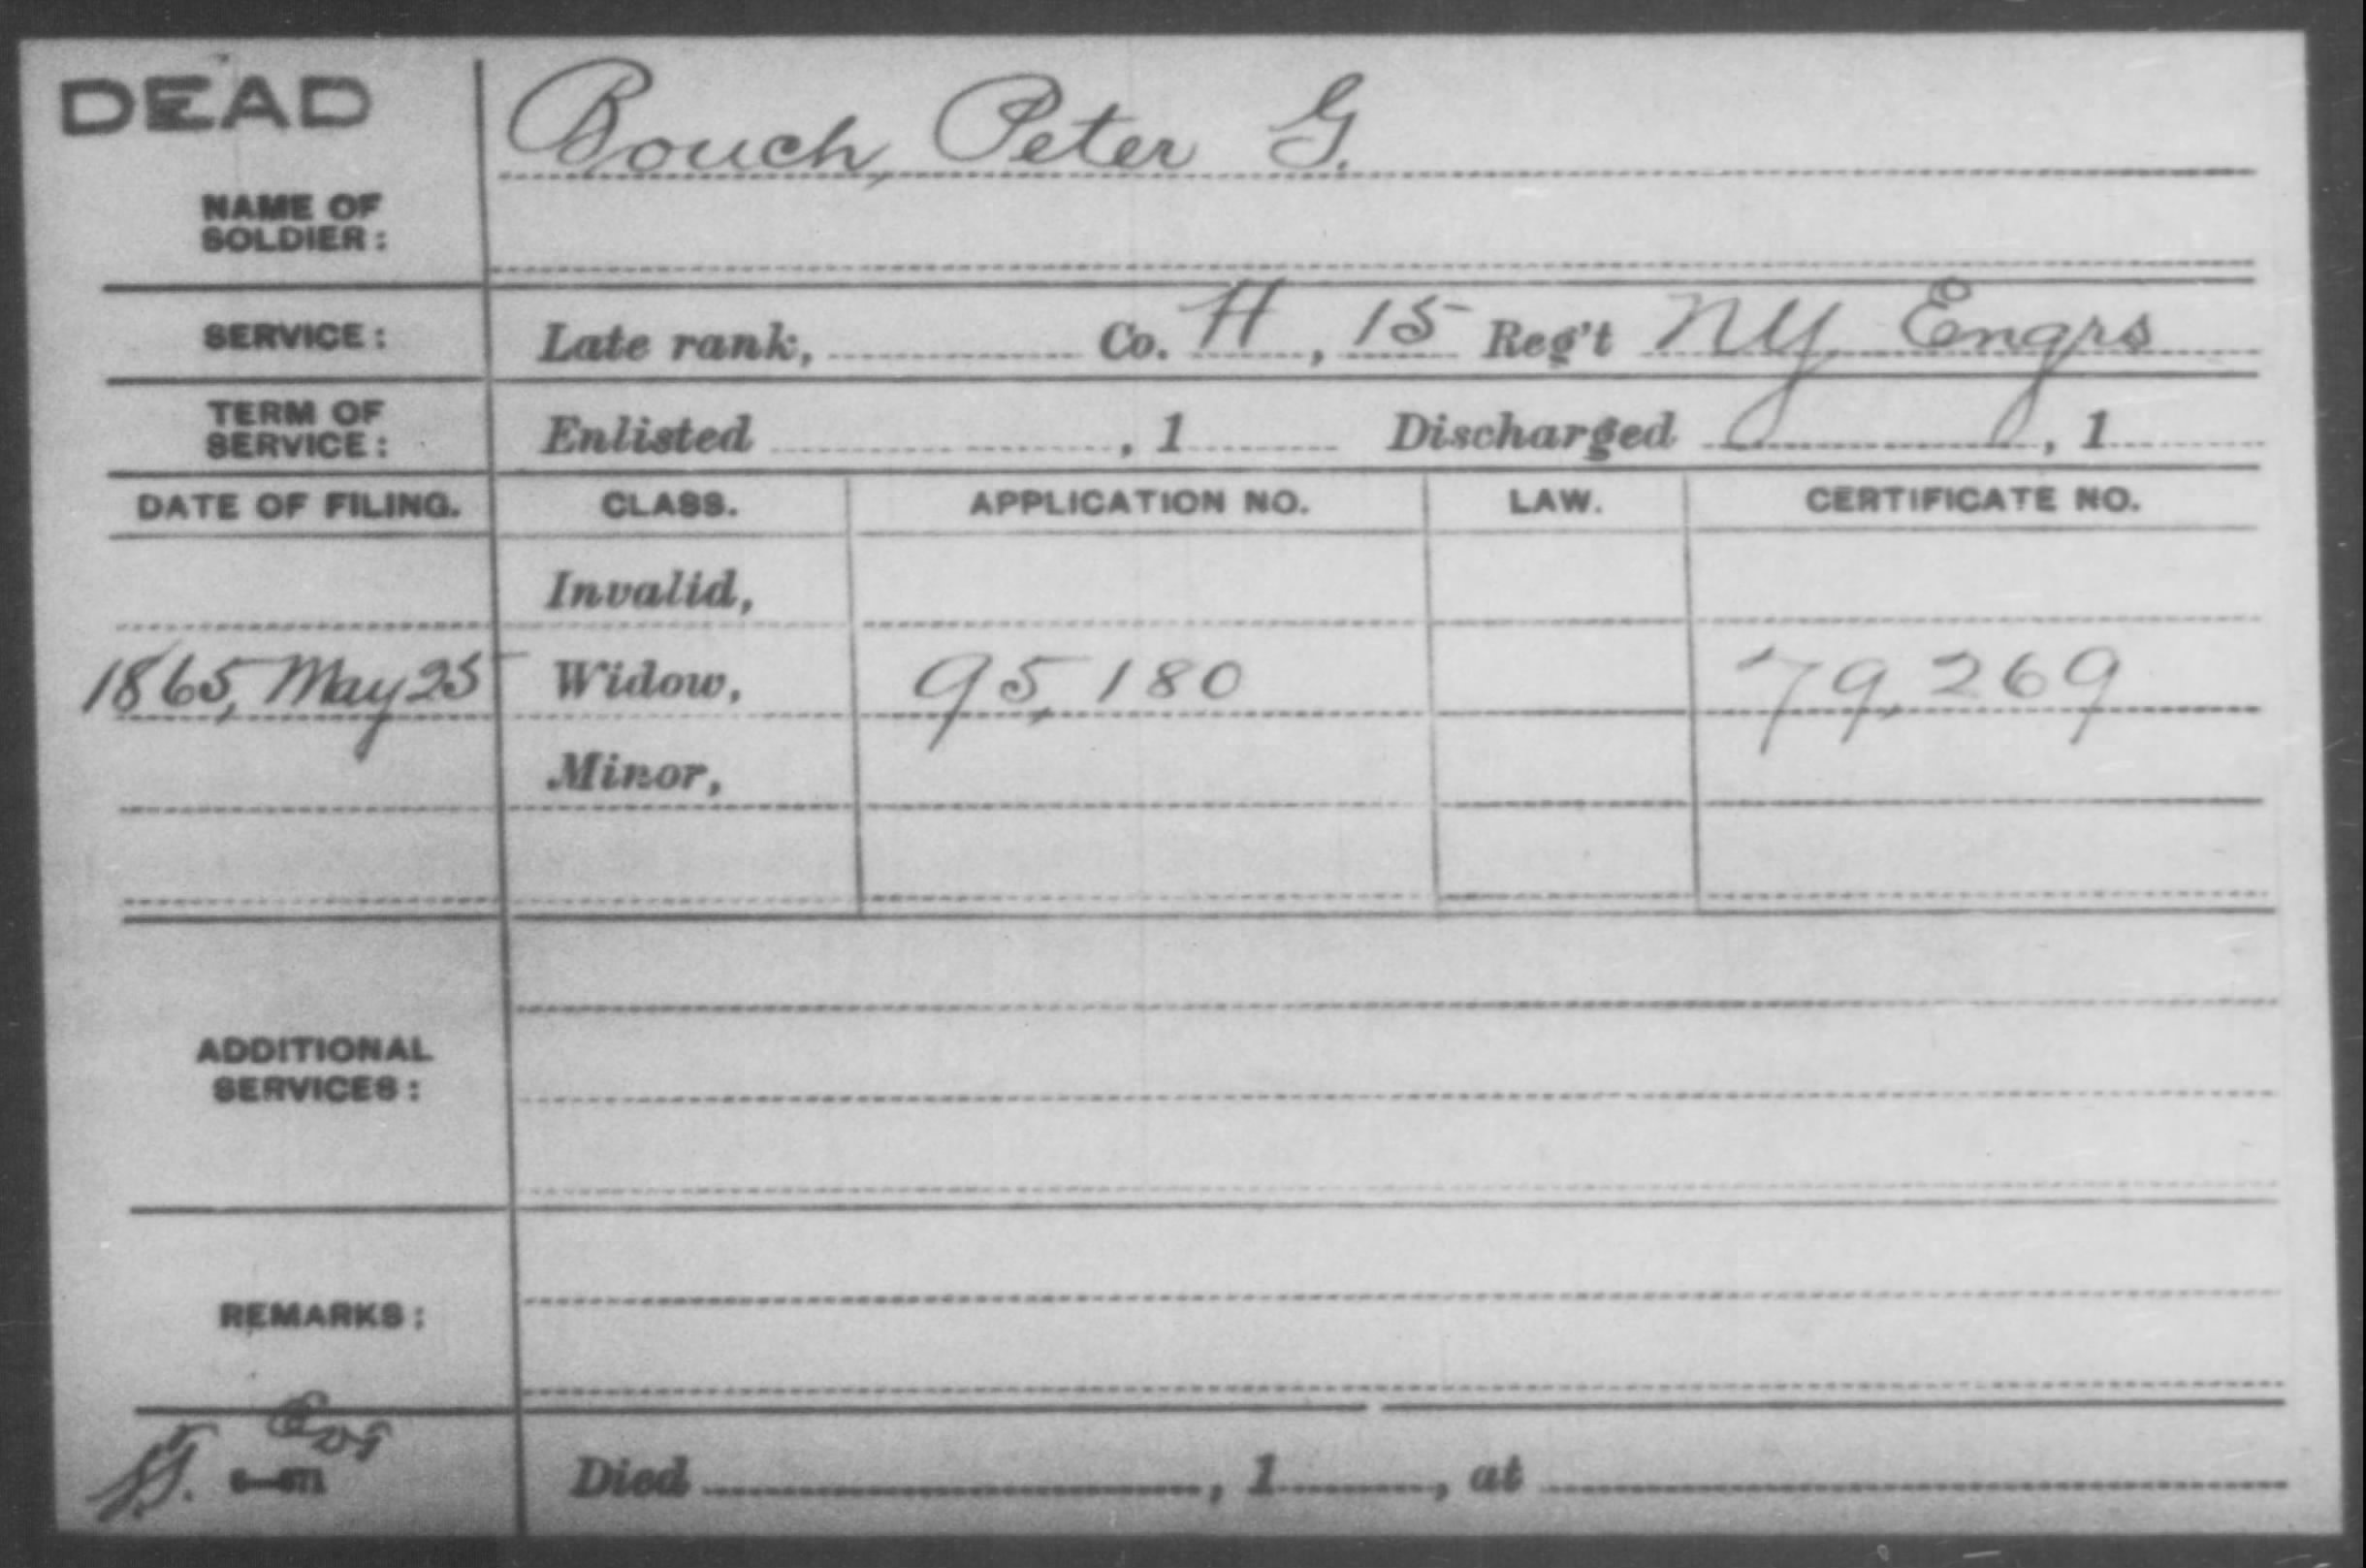 DEAD
Bouch, Peter G.
NAME OF
SOLDIER:
SERVICE: Late rank, Co. H, 15 Reg't NY Engrs
TERM OF
SERVICE: Enlisted , 1 Discharged , 1
DATE OF FILING. CLASS. APPLICATION NO. LAW. CERTIFICATE NO.
Invalid,
1865, May 25 Widow, 95,180 79,269
Minor,
ADDITIONAL
SERVICES:
REMARKS:
Died , 1 , at